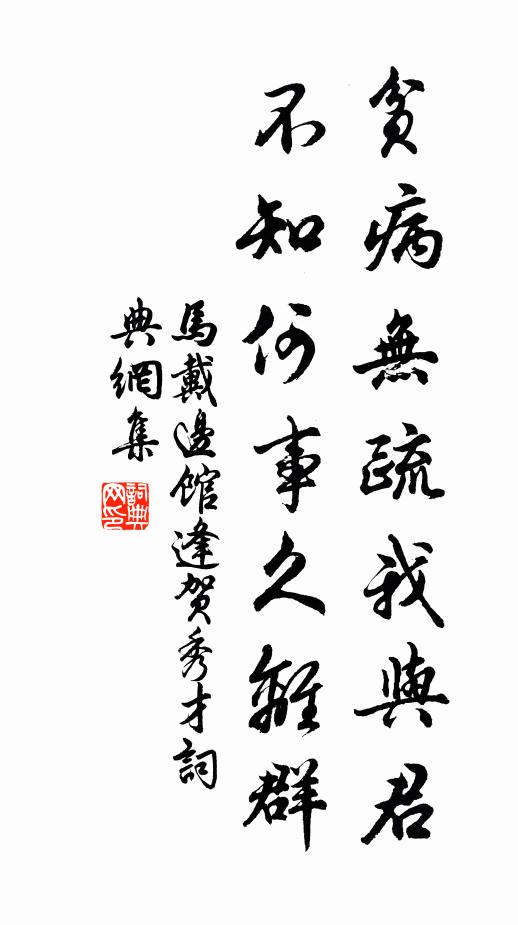 貧病無疏我與君
不知何事久離群
馬戴邊館逢賀秀才詞
典網集
詞典
网印